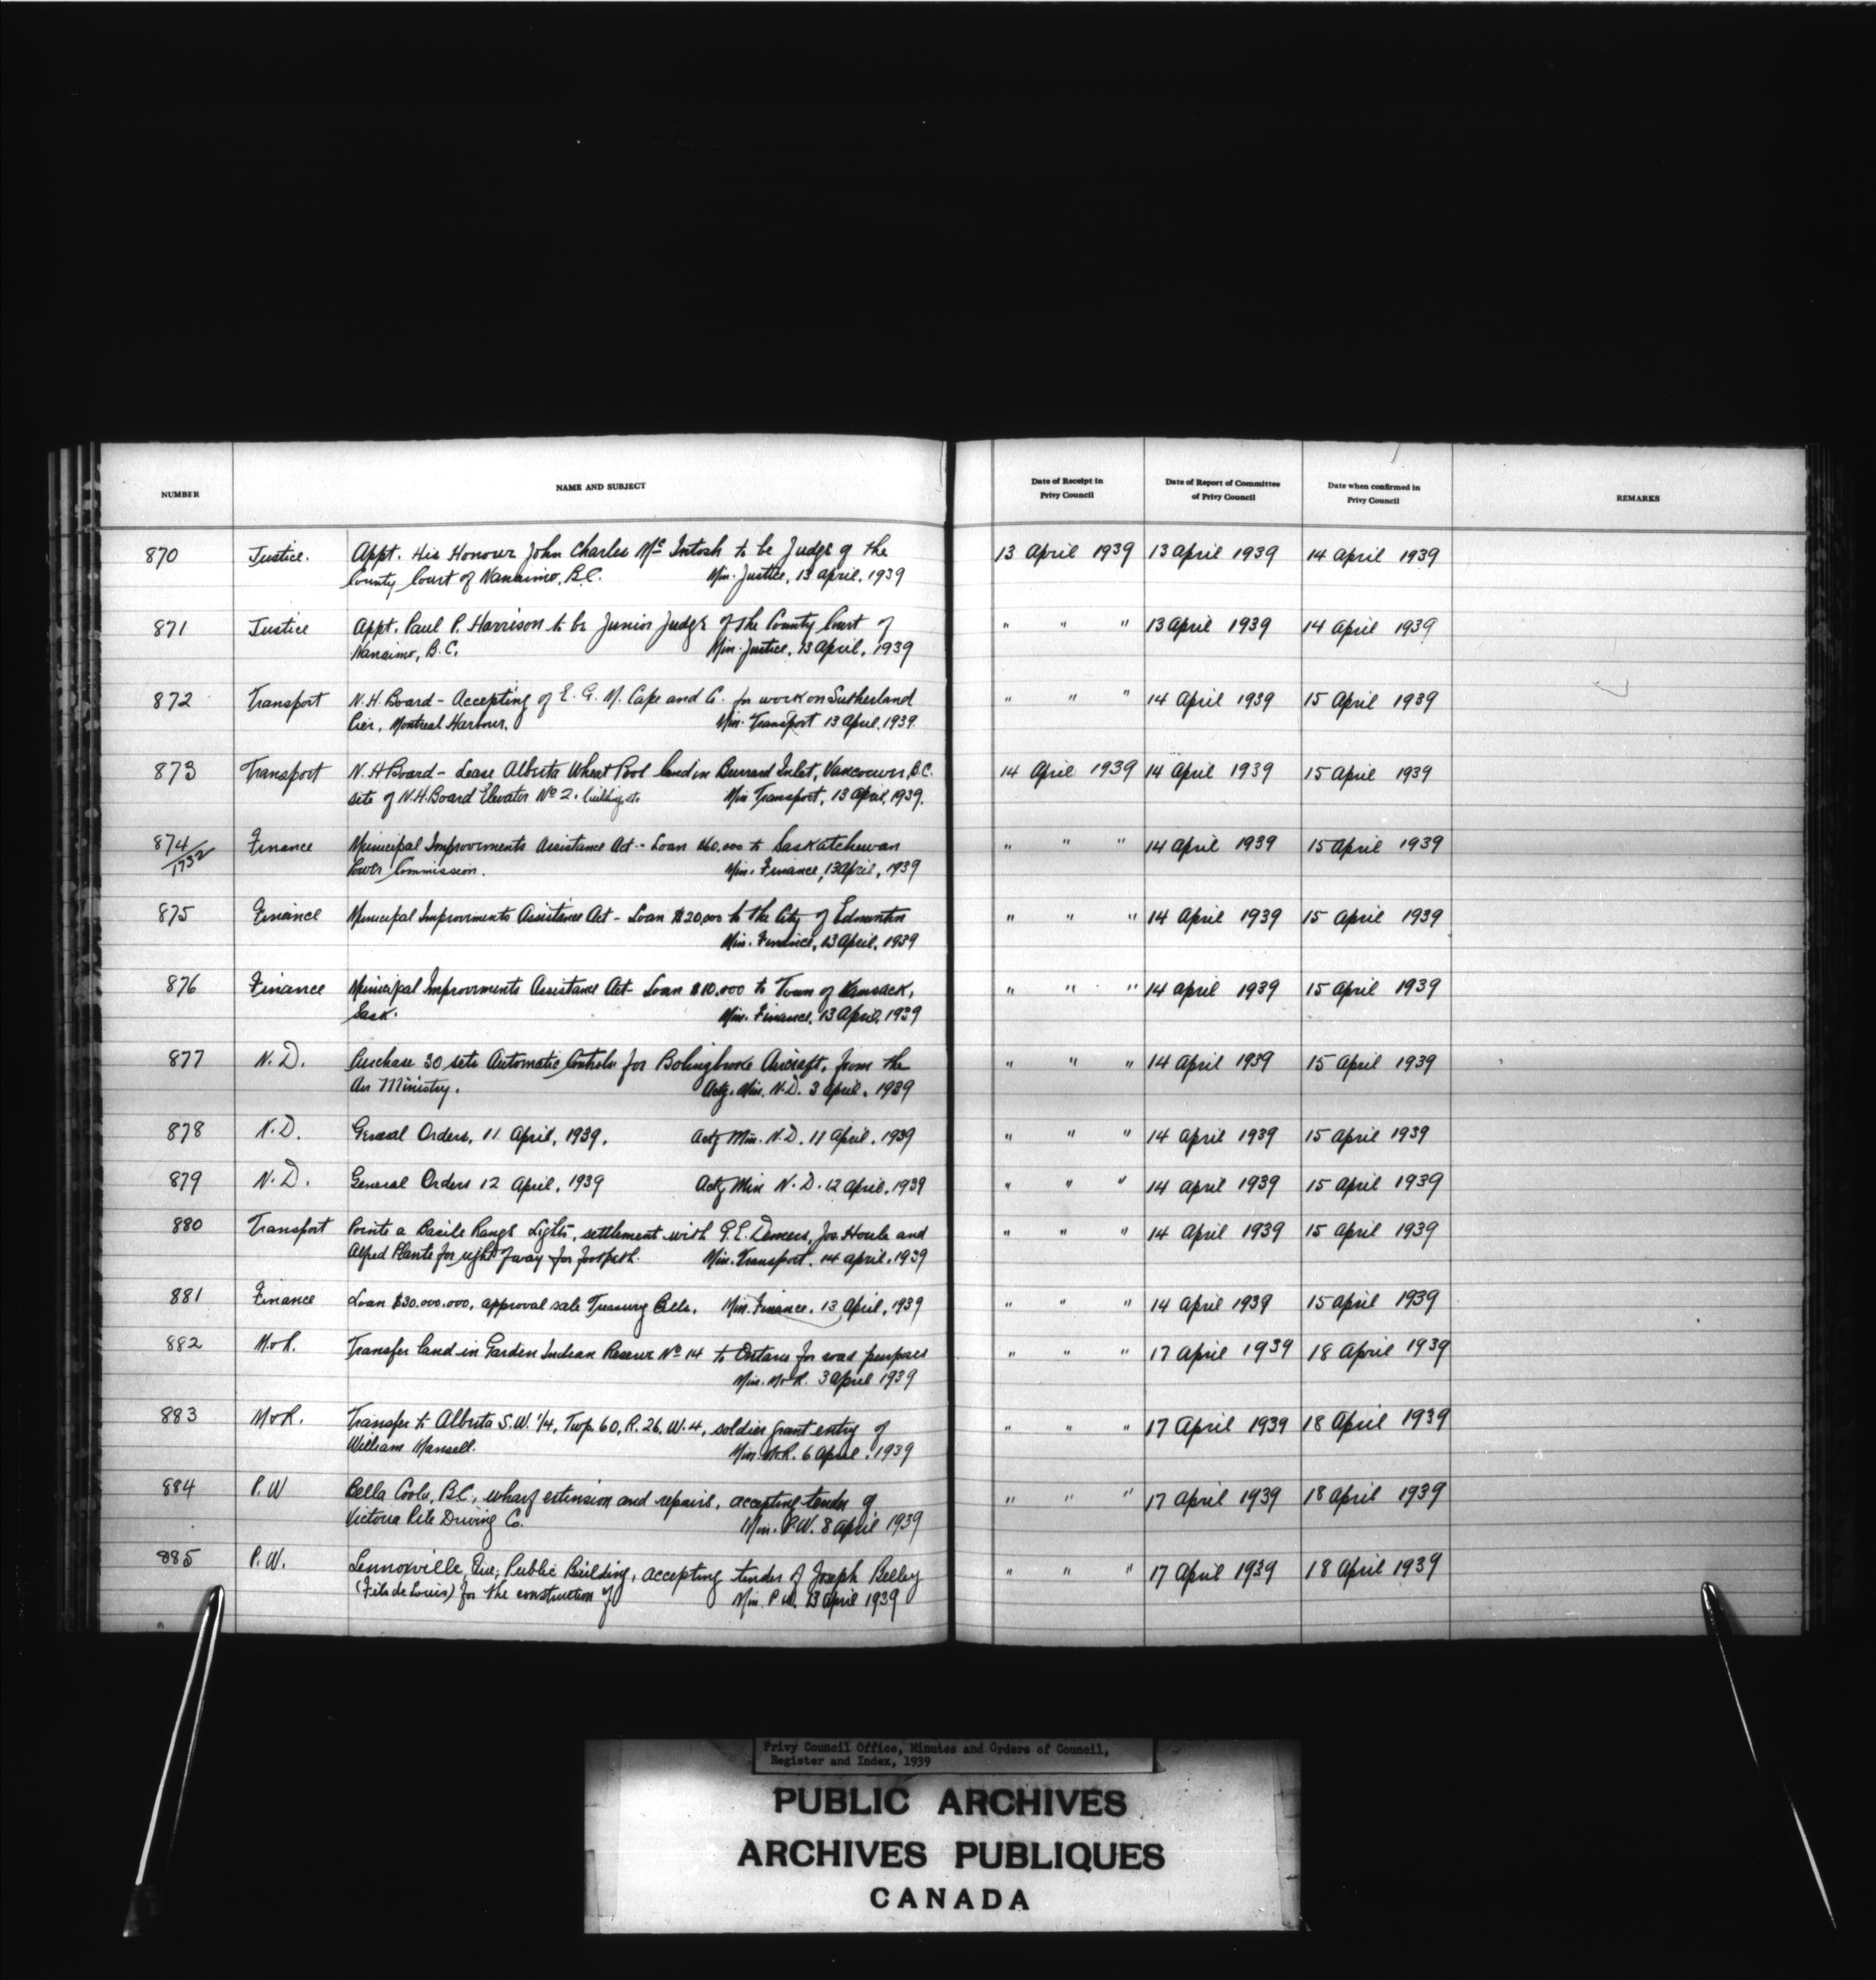 NUMBER NAME AND SUBJECT Date of Receipt in Privy Council Date of Report of Committee of Privy Council Date when confirmed in Privy Council REMARKS
870 Justice. Appt. His Honour John Charles Mc Intosh to be Judge of the 13 April 1939 13 April 1939 14 April 1939
County Court of Nanaimo, B.C. Min. Justice, 13 April, 1939
871 Justice Appt. Paul P. Harrison to be Junior Judge of the County Court of " " " 13 April 1939 14 April 1939
Nanaimo, B.C. Min. Justice, 13 April, 1939
872 Transport N.H. Board - Accepting of E. G. M. Cape and Co. for work on Sutherland " " " 14 April 1939 15 April 1939
Pier, Montreal Harbour. Min. Transport 13 April, 1939.
873 Transport N.H Board - Lease Alberta Wheat Pool land in Burrard Inlet, Vancouver, B.C. 14 April 1939 14 April 1939 15 April 1939
site of N.H. Board Elevator No 2. building etc. Min Transport, 13 April, 1939.
874/1732 Finance Municipal Improvements Assistance Act - Loan $60,000 to Saskatchewan " " " 14 April 1939 15 April 1939
Power Commission. Min. Finance, 13 April, 1939
875 Finance Municipal Improvements Assistance Act - Loan $20,000 to the City of Edmonton " " " 14 April 1939 15 April 1939
Min. Finance, 13 April, 1939
876 Finance Municipal Improvements Assistance Act - Loan $10,000 to Town of Kamsack, " " " 14 April 1939 15 April 1939
Sask. Min. Finance, 13 April, 1939
877 N. D. Purchase 30 sets Automatic Controls for Bolingbroke Aircraft, from the " " " 14 April 1939 15 April 1939
Air Ministry. Actg. Min. N.D. 3 April, 1939
878 N.D. General Orders, 11 April, 1939. Actg Min. N.D. 11 April, 1939 " " " 14 April 1939 15 April 1939
879 N.D. General Orders 12 April, 1939 Actg Min N.D. 12 April, 1939 " " " 14 April 1939 15 April 1939
880 Transport Pointe a Basile Range Lights, settlement with G.E. Demers, Jos. Houle and " " " 14 April 1939 15 April 1939
Alfred Plante for right of way for footpath. Min. Transport. 14 April, 1939
881 Finance Loan $30.000.000, approval sale Treasury Bills. Min. Finance. 13 April, 1939 " " " 14 April 1939 15 April 1939
882 M&R. Transfer land in Garden Indian Reserve No 14 to Ontario for road purposes " " " 17 April 1939 18 April 1939
Min. M&R. 3 April 1939
883 M&R. Transfer to Alberta S.W. 1/4, Twp. 60, R. 26, W. 4, soldier grant entry of " " " 17 April 1939 18 April 1939
William Mansell. Min. M&R. 6 April, 1939
884 P.W Bella Coola, B.C., wharf extension and repairs, accepting tender of " " " 17 April 1939 18 April 1939
Victoria Pile Driving Co. Min. P.W. 8 April 1939
885 P.W. Lennoxville, Que; Public Building, accepting tender of Joseph Belley " " " 17 April 1939 18 April 1939
(Fils de Louis) for the construction of Min. P.W. 13 April 1939
Privy Council Office, Minutes and Orders of Council,
Register and Index, 1939
PUBLIC ARCHIVES
ARCHIVES PUBLIQUES
CANADA